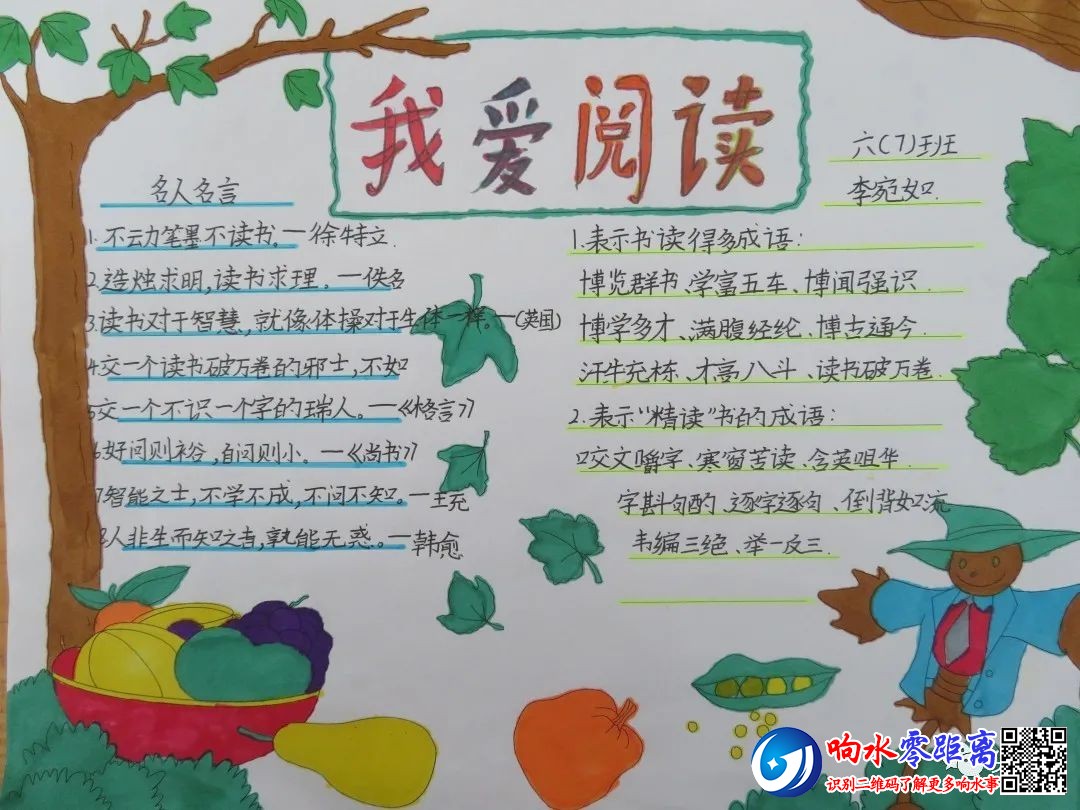 我爱阅读
六(7)班
李宛如
名人名言
1.不云力笔墨不读书。—徐特立.
2.造烛求明,读书求理。—佚名
3.读书对于智慧,就像体操对于身体一样。—(英国)
4交一个读书破万卷的邪士,不如
5交一个不识一个字的端人。—《格言》
6好问则裕,自问则小。—《尚书》
7智能之士,不学不成,不问不知。—王充
8人非生而知之者,孰能无惑。—韩愈
1.表示书读得多成语:
博览群书、学富五车、博闻强识
博学多才、满腹经纶、博古通今.
汗牛充栋、才高八斗、读书破万卷.
2.表示"精读"书的成语:
咬文嚼字、寒窗苦读、含英咀华.
字斟句酌、逐字逐句、倒背如流
韦编三绝、举一反三.
响水零距离
识别二维码了解更多响水事